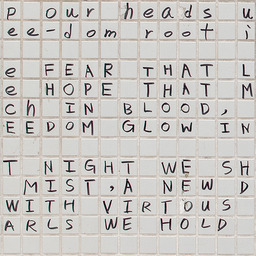 p our heads u
ee-dom root i
e FEAR THAT L
e HOPE THAT M
ch IN BLOOD,
EEDOM GLOW IN
T NIGHT WE SH
MIST, A NEW D
WITH VIRTOUS
ARLS WE HOLD